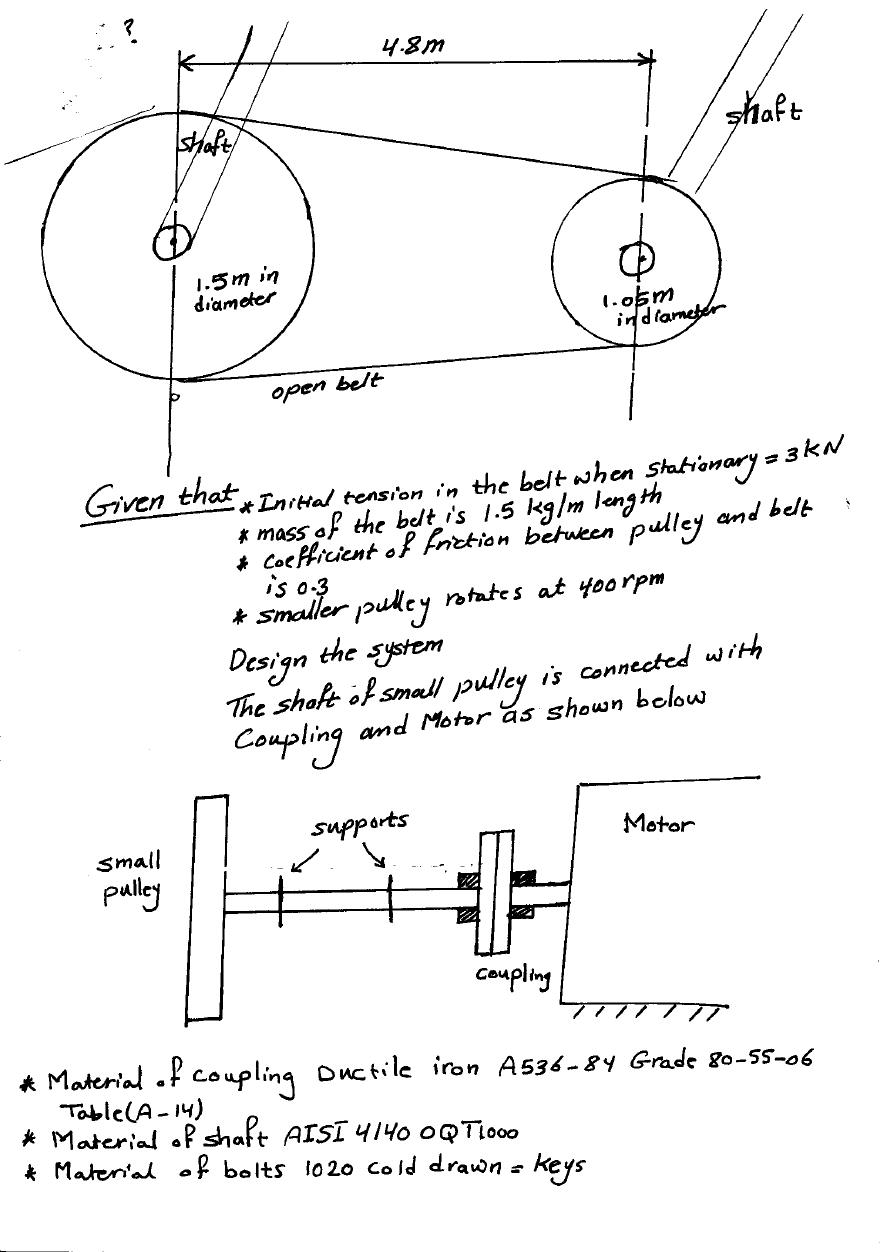 ?
4.8m
shaft
shaft
1.5m in
diameter
1.05m
in diameter
open belt
Given that * Initial tension in the belt when stationary = 3 kN
* mass of the belt is 1.5 kg/m length
* coefficient of friction between pulley and belt
is 0.3
* smaller pulley rotates at 400 rpm
Design the system
The shaft of small pulley is connected with
Coupling and Motor as shown below
supports
Motor
small
pulley
coupling
* Material of coupling Ductile iron A536-84 Grade 80-55-06
Table (A-14)
* Material of shaft AISI 4140 OQT1000
* Material of bolts 1020 cold drawn = keys